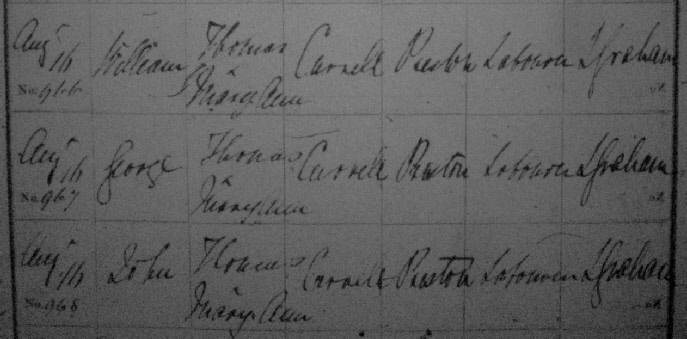 Augt 16 William Thomas Carrell Preston Labourer J Graham
No. 966 Mary Ann
Augt 16 George Thomas Carrell Preston Labourer J Graham
No. 967 Mary Ann
Augt 16 John Thomas Carrell Preston Labourer J Graham
No. 968 Mary Ann